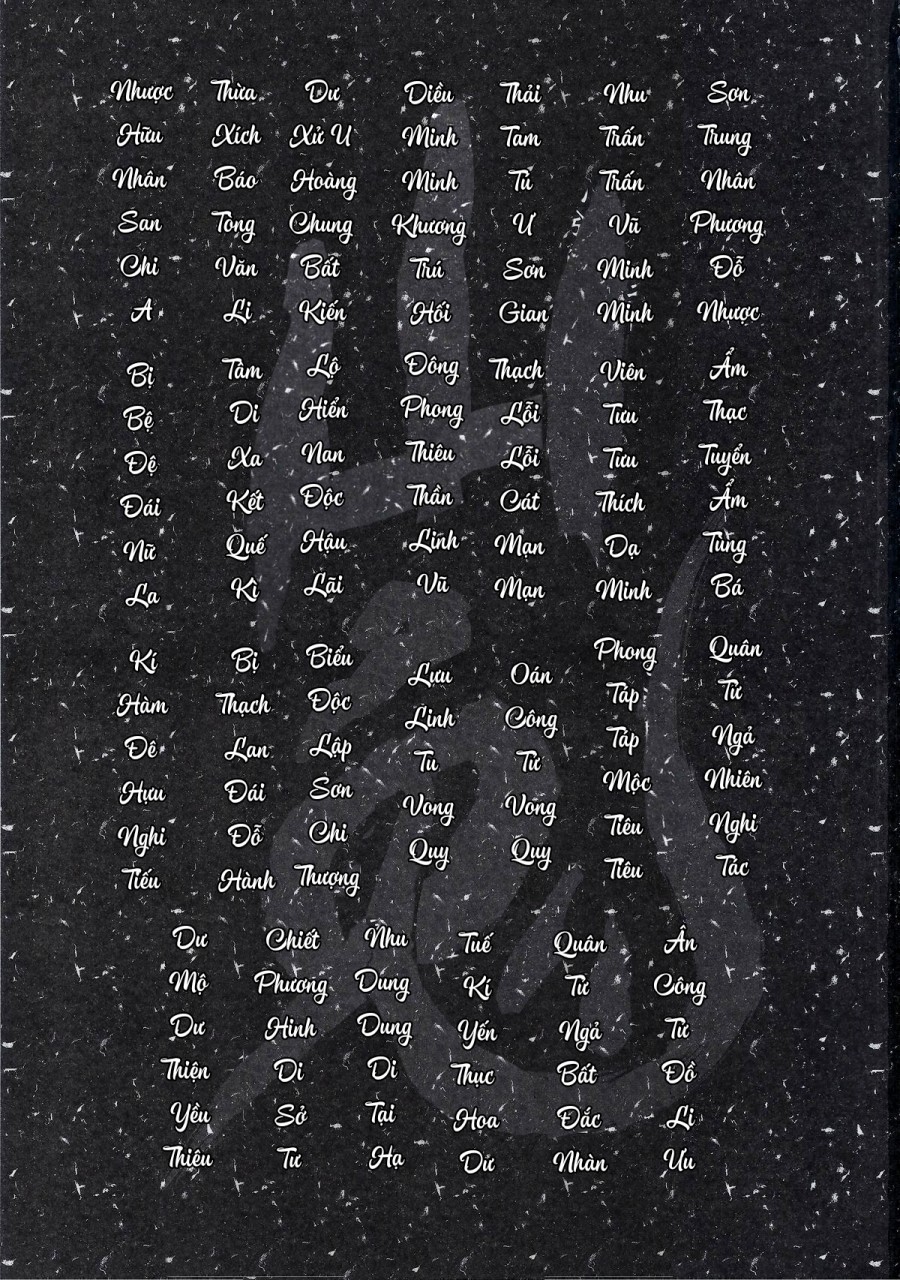 Nhược Hữu Nhân San Chi A
Bị Bệ Đệ Đái Nữ La
Kí Hàm Đê Hựu Nghi Tiếu
Dư Mộ Dư Thiện Yểu Thiêu
Thừa Xích Báo Tòng Văn Li
Tâm Di Xa Kết Quế Kì
Bị Thạch Lan Đái Đỗ Hành
Chiết Phương Hinh Di Sở Tư
Dư Xử U Hoàng Chung Bất Kiến
Lộ Hiển Nan Độc Hậu Lãi
Biểu Độc Lập Sơn Chi Thượng
Nhu Dung Dung Di Tại Hạ
Diều Minh Minh Khương Trú Hối
Đông Phong Thiêu Thần Linh Vũ
Lưu Linh Tu Vong Quy
Tuế Kí Yến Thục Hoa Dữ
Thải Tam Tú Ư Sơn Gian
Thạch Lỗi Lỗi Cát Mạn Mạn
Oán Công Tử Vong Quy
Quân Tử Ngả Bất Đắc Nhàn
Nhu Trấn Trấn Vũ Minh Minh
Viên Tưu Tưu Thích Dạ Minh
Phong Táp Táp Mộc Tiêu Tiêu
Ân Công Tử Đồ Li Ưu
Sơn Trung Nhân Phương Đỗ Nhược
Ẩm Thạc Tuyển Ẩm Tùng Bá
Quân Tử Ngả Nhiên Nghi Tác